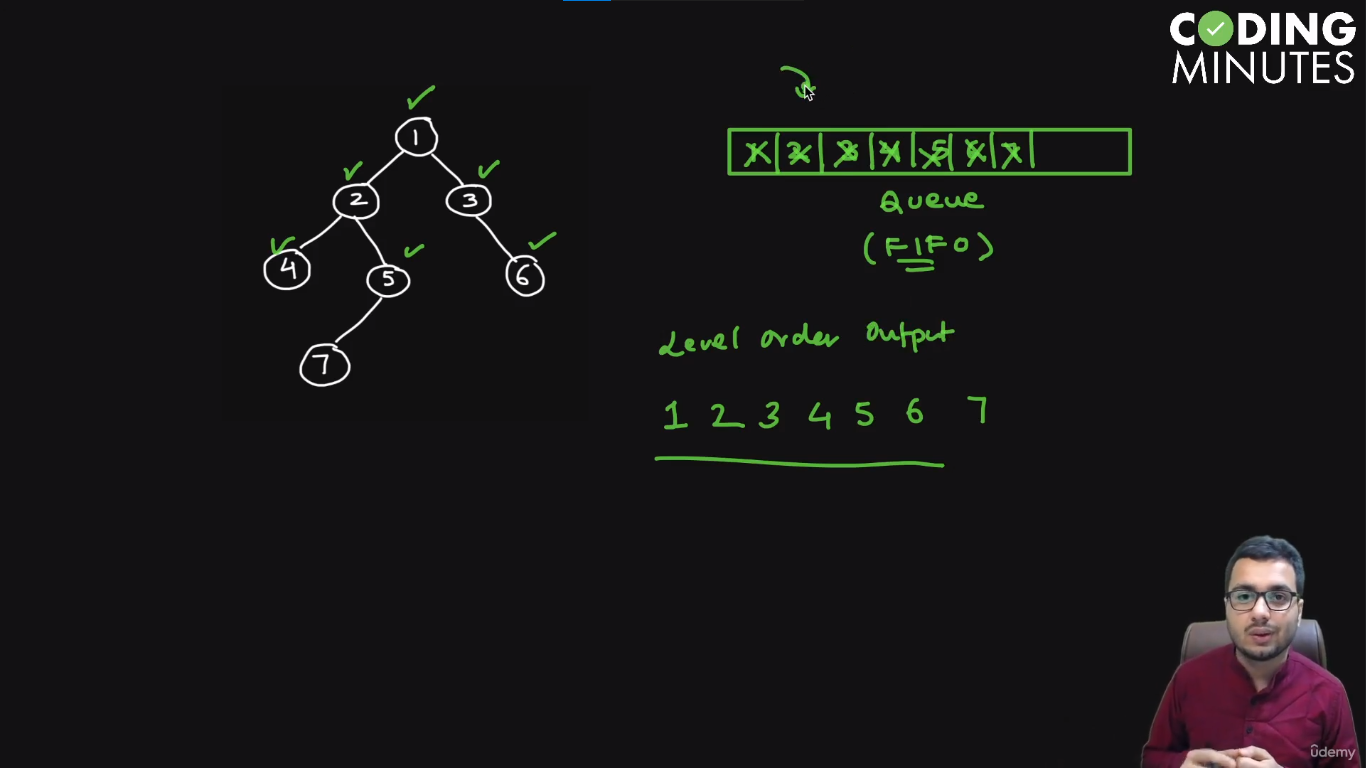 CODING
MINUTES
1
2
3
4
5
6
7
1 2 3 4 5 6 7
Queue
(FIFO)
Level Order Output
1 2 3 4 5 6 7
ûdemy